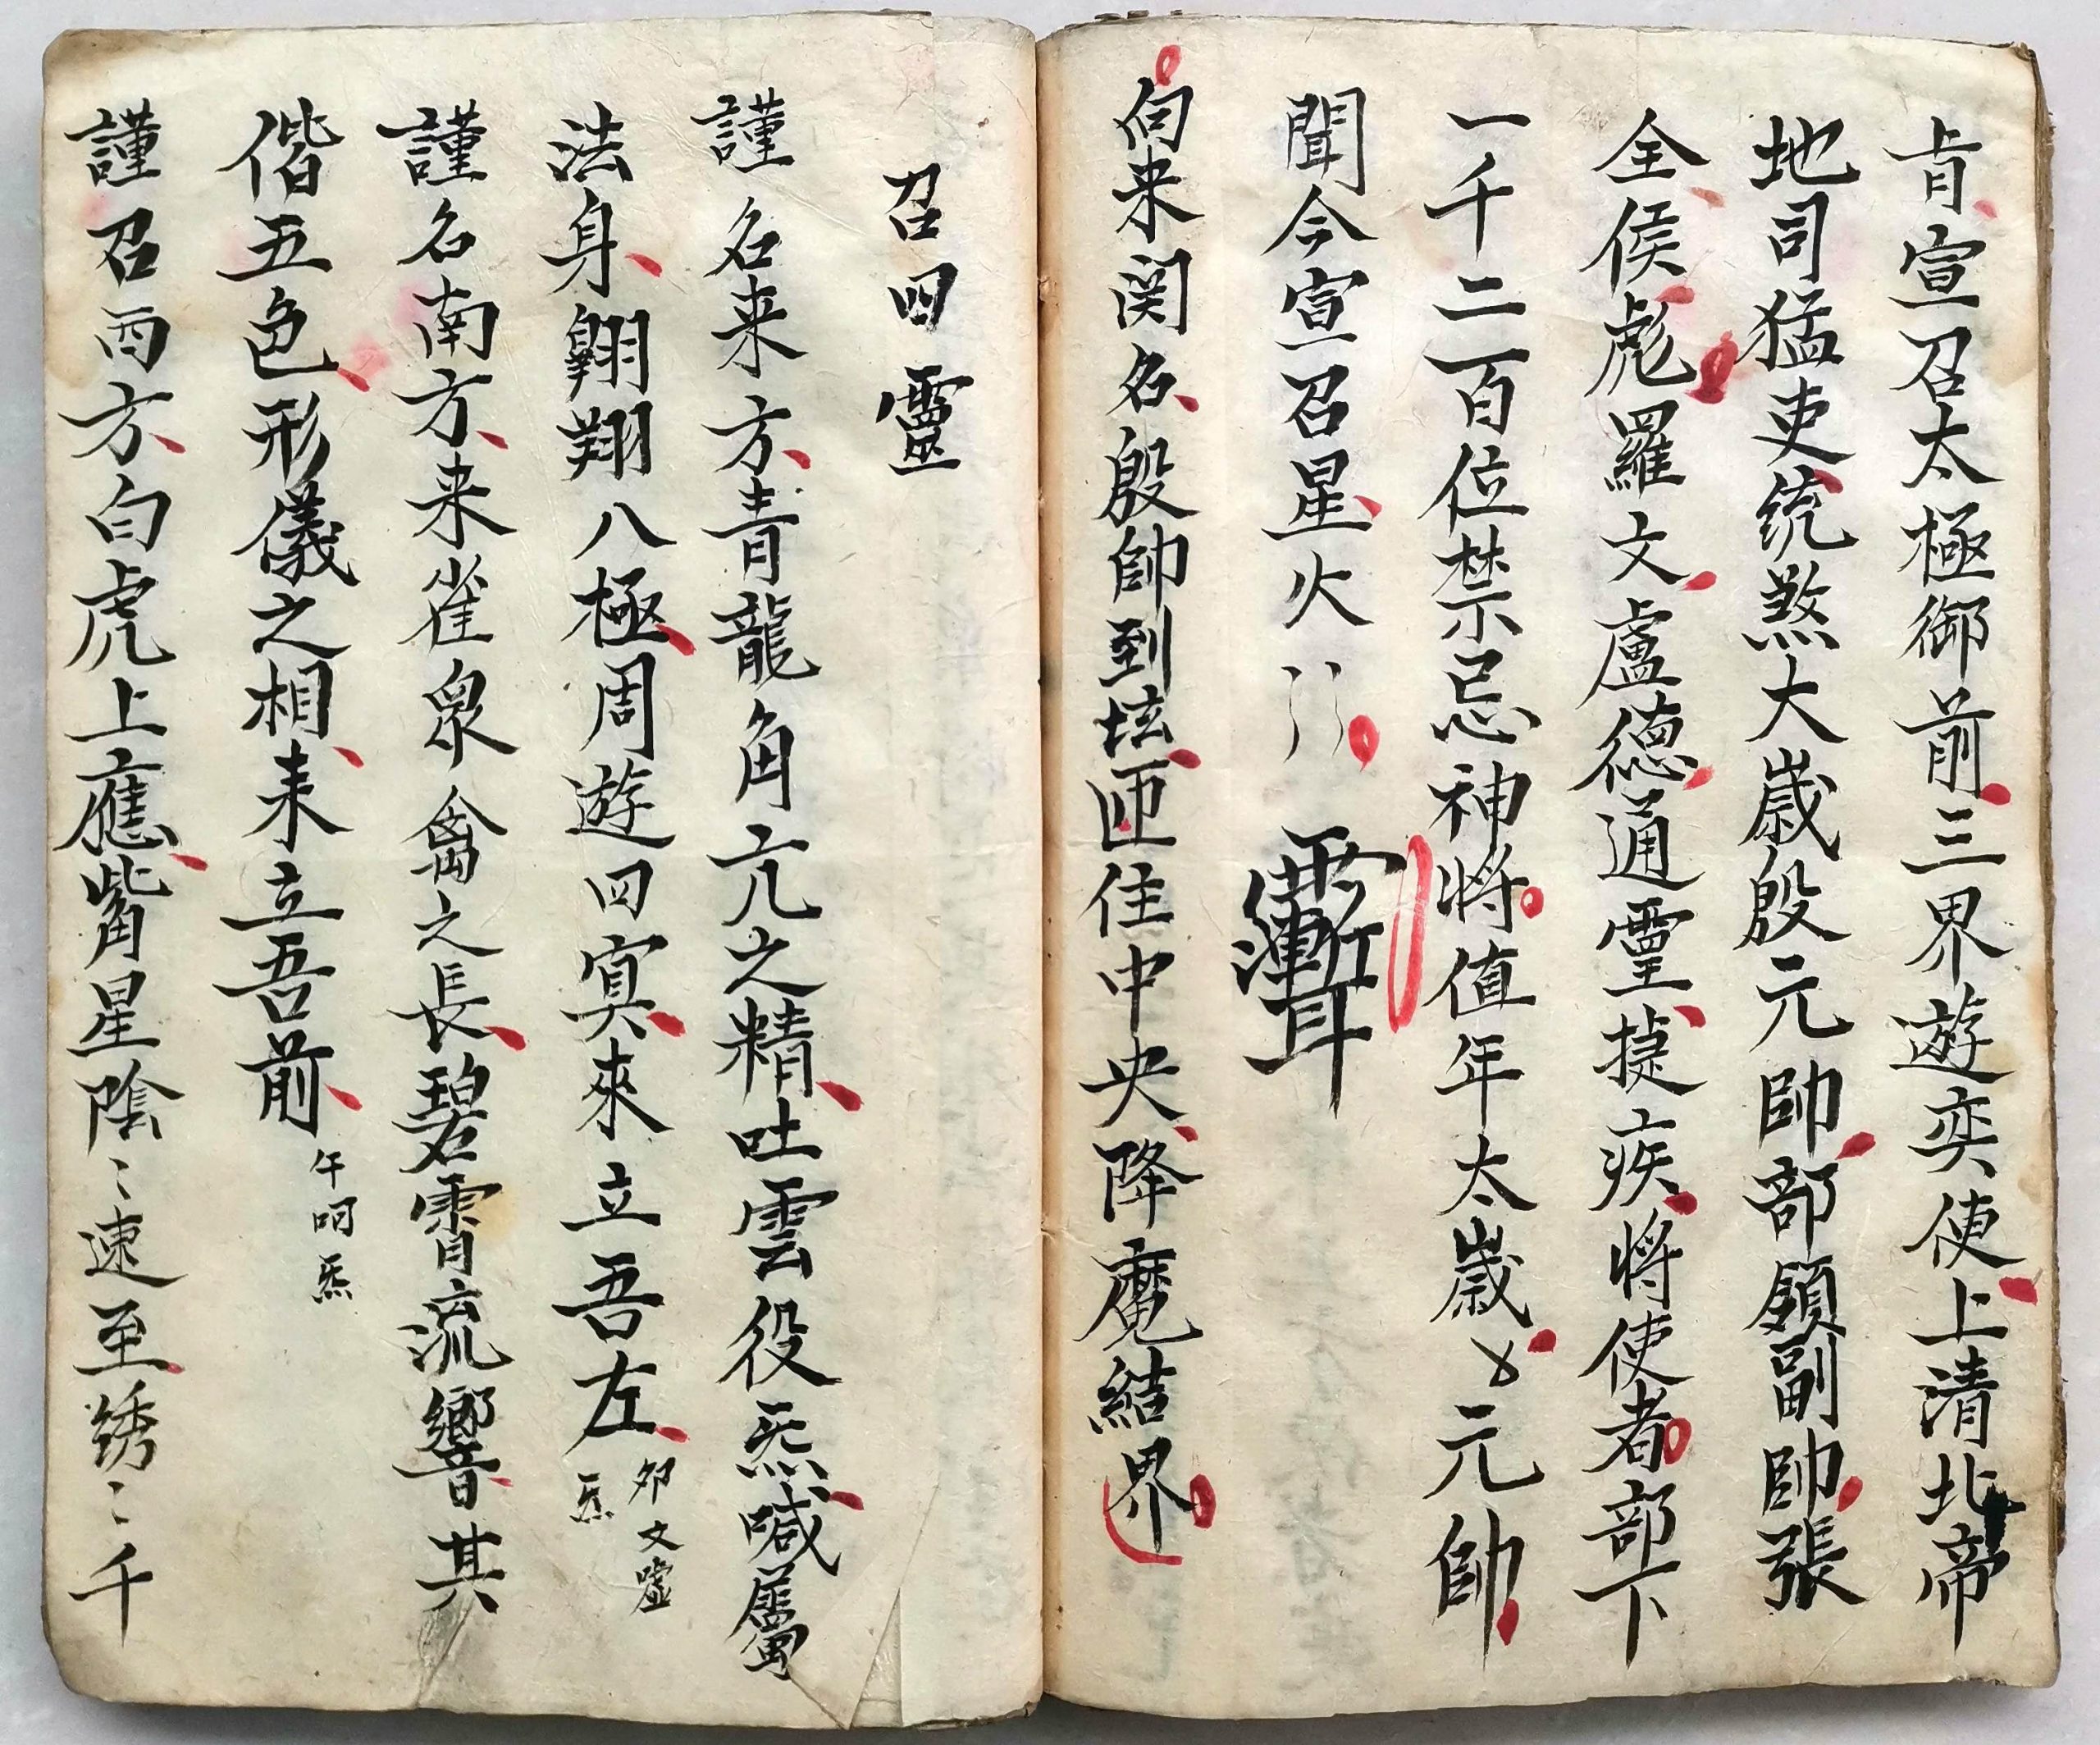 旨宣召太極御前三界遊奕使上清北帝
地司猛吏统煞大歲殷元帥部領副帥張
全侯彪羅文盧德通靈捷疾将使者部下
一千二百位禁忌神將值年太歲元帥
聞今宣召星火
向来関名殷帥到坛迊住中央降魔結界
召四靈
謹名来方青龍角亢之精吐雲役炁喊屬
法身翱翔八極周遊四寘來立吾左
卯文噓
炁
謹名南方来雀衆禽之長碧霄流響其
偕五色形儀之相来立吾前
午呵炁
謹召西方白虎上應觜星陰〻速至綉〻千